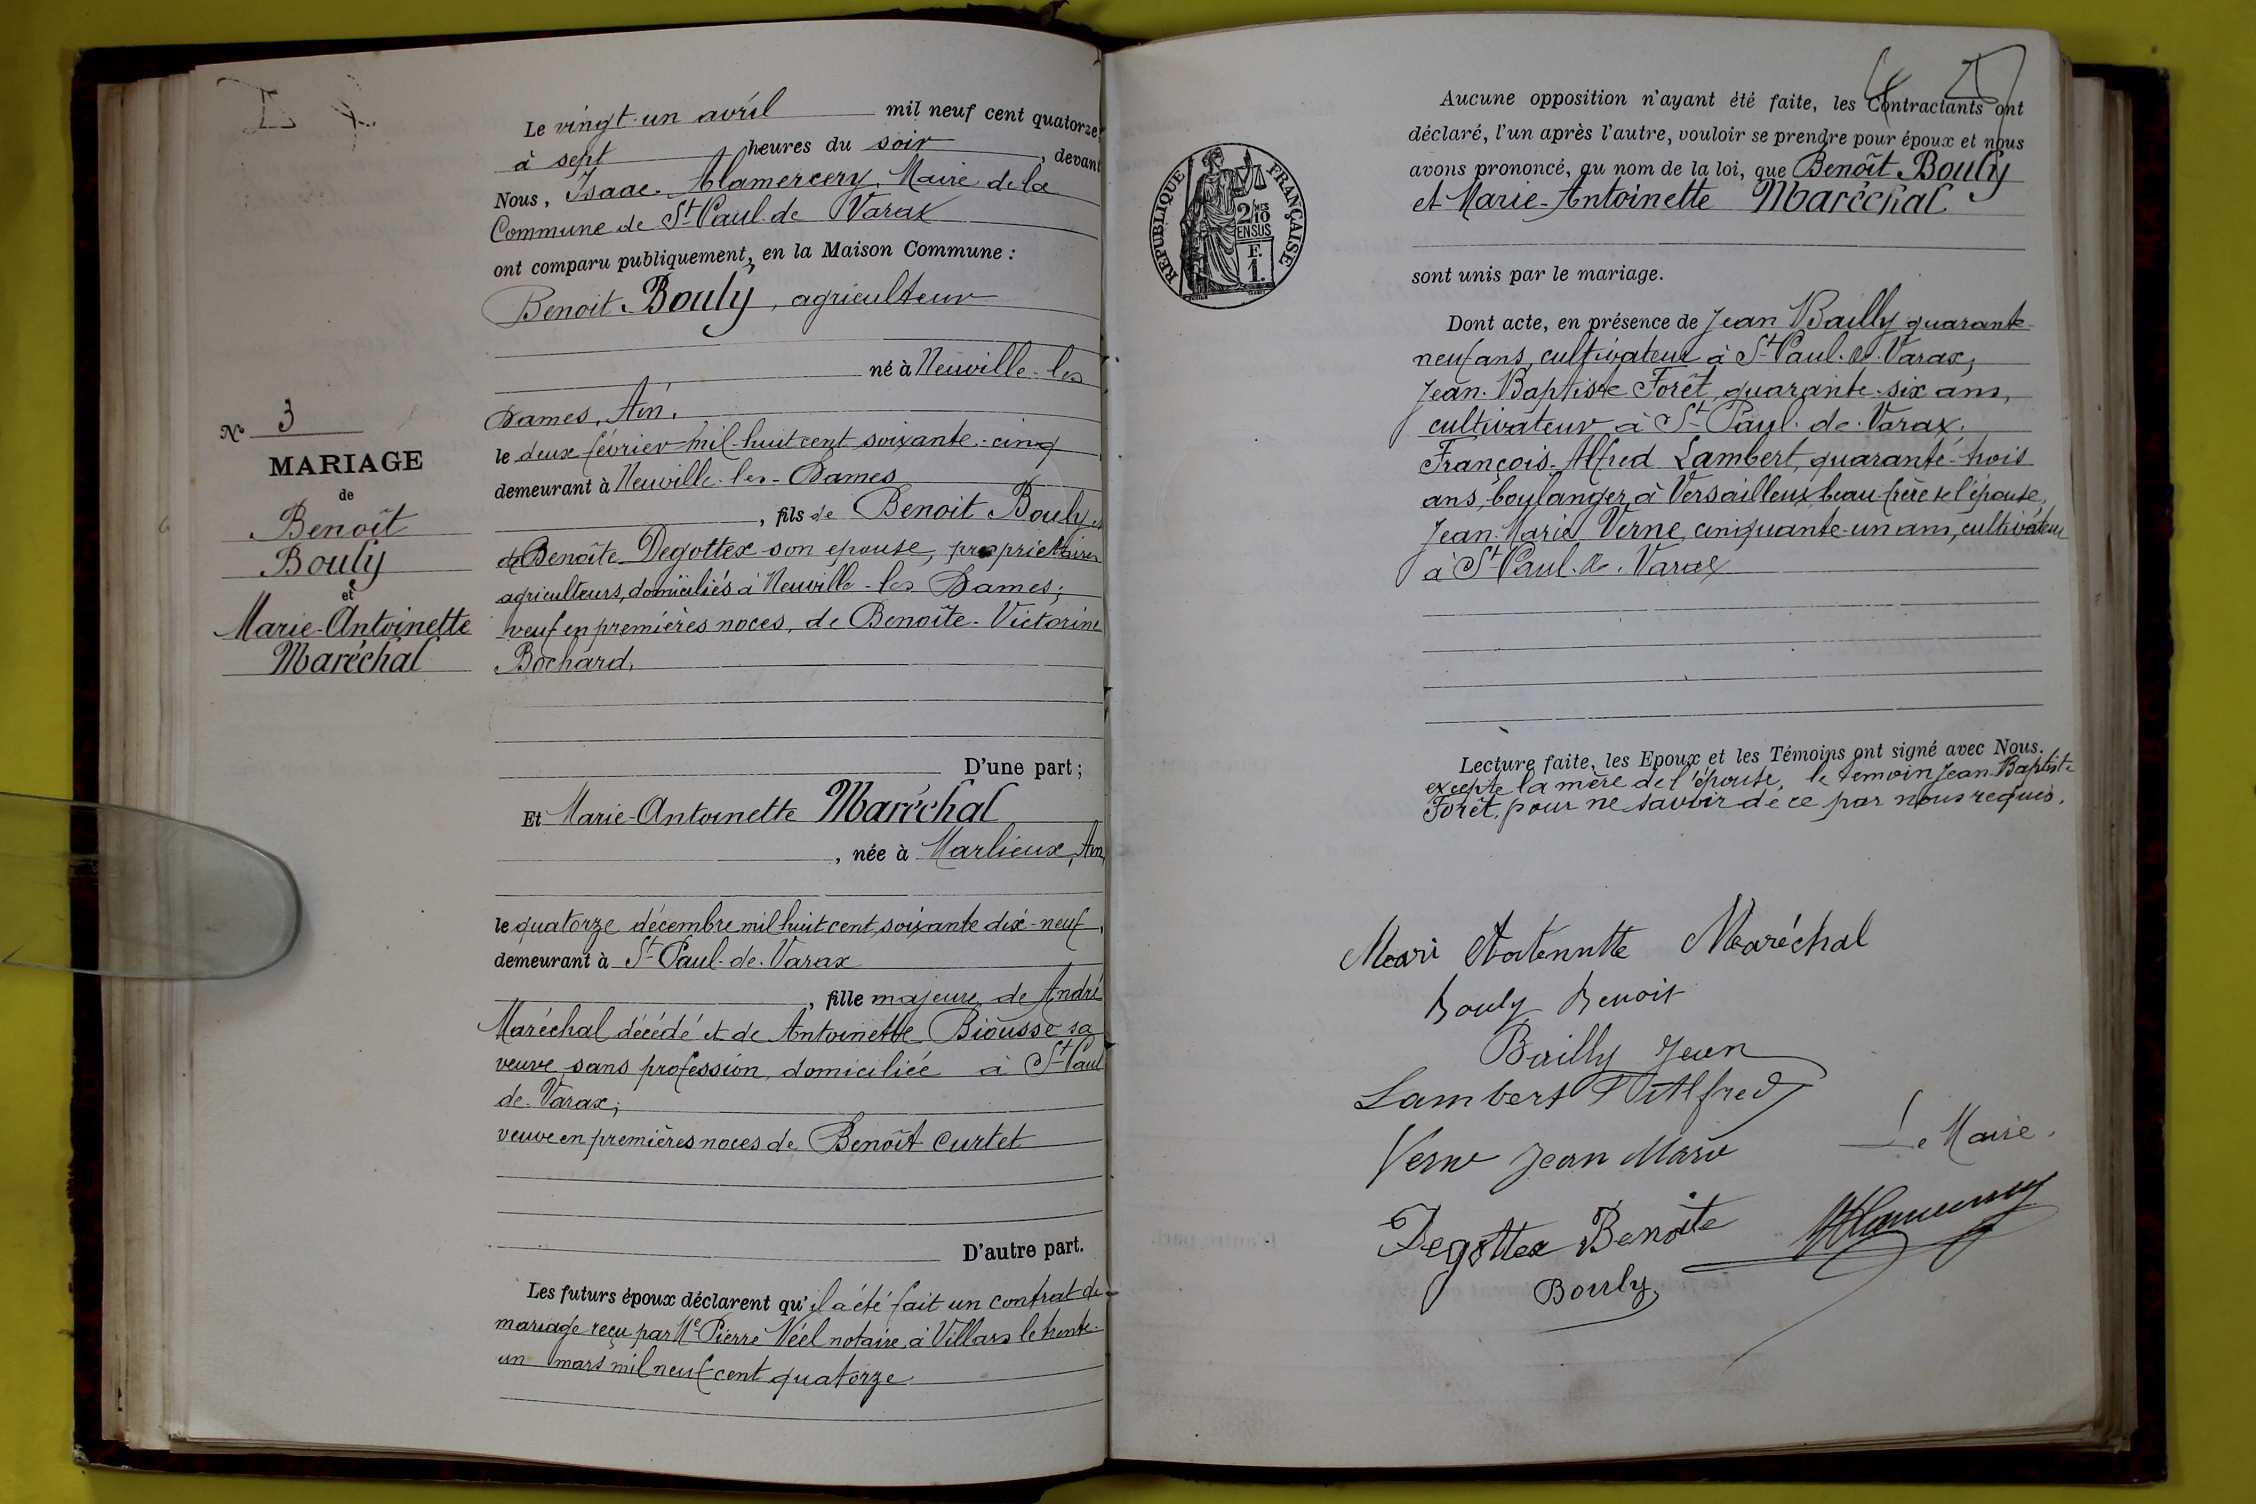 Le vingt-un avril mil neuf cent quatorze,
à sept heures du soir, devant
Nous, Isaac Alamercery, Maire de la
Commune de St Paul-de-Varax
ont comparu publiquement, en la Maison Commune :
Benoit Bouly, agriculteur
né à Neuville-les
Dames, Ain.
le deux février mil-huit cent soixante-cinq
demeurant à Neuville-les-Dames
, fils de Benoit Bouly et
de Benoîte Degottex son epouse, propriétaires
agriculteurs, domiciliés à Neuville-les Dames;
veuf en premières noces, de Benoîte-Victorine
Bochard.
D'une part ;
Nº 3
MARIAGE
de
Benoît
Bouly
et
Marie-Antoinette
Maréchal
Et Marie-Antoinette Maréchal
, née à Marlieux, Ain,
le quatorze décembre mil huit cent soixante dix-neuf,
demeurant à St Paul-de-Varax
, fille majeure de André
Maréchal décédé et de Antoinette Biousse sa
veuve, sans profession, domiciliée à St Paul
de-Varax;
veuve en premières noces de Benoît Curtet
D'autre part.
Les futurs époux déclarent qu'il a été fait un contrat de
mariage reçu par Me Pierre Néel notaire à Villars le trente-
un mars mil neuf cent quatorze
Aucune opposition n'ayant été faite, les Contractants ont
déclaré, l'un après l'autre, vouloir se prendre pour époux et nous
avons prononcé, au nom de la loi, que Benoît Bouly
et Marie-Antoinette Maréchal
sont unis par le mariage.
RÉPUBLIQUE FRANÇAISE
2/10
EN SUS
F.
1.
Dont acte, en présence de Jean Bailly quarante-
neuf ans, cultivateur à St Paul-de-Varax,
Jean-Baptiste Forêt, quarante-six ans,
cultivateur à St Paul-de-Varax.
François-Alfred Lambert, quarante-trois
ans, boulanger, à Versailleux, beau-frère de l'épouse,
Jean-Marie Verne, cinquante-un ans, cultivateur
à St Paul-de-Varax
Lecture faite, les Epoux et les Témoins ont signé avec Nous.
excepte la mère de l'épouse, le témoin Jean-Baptiste
Forêt, pour ne savoir de ce par nous requis.
Maréchal
Bouly Benoit
Bailly Jean
Lambert Alfred
Verne Jean Marie
Le Maire,
Degottex Benoite
Bouly